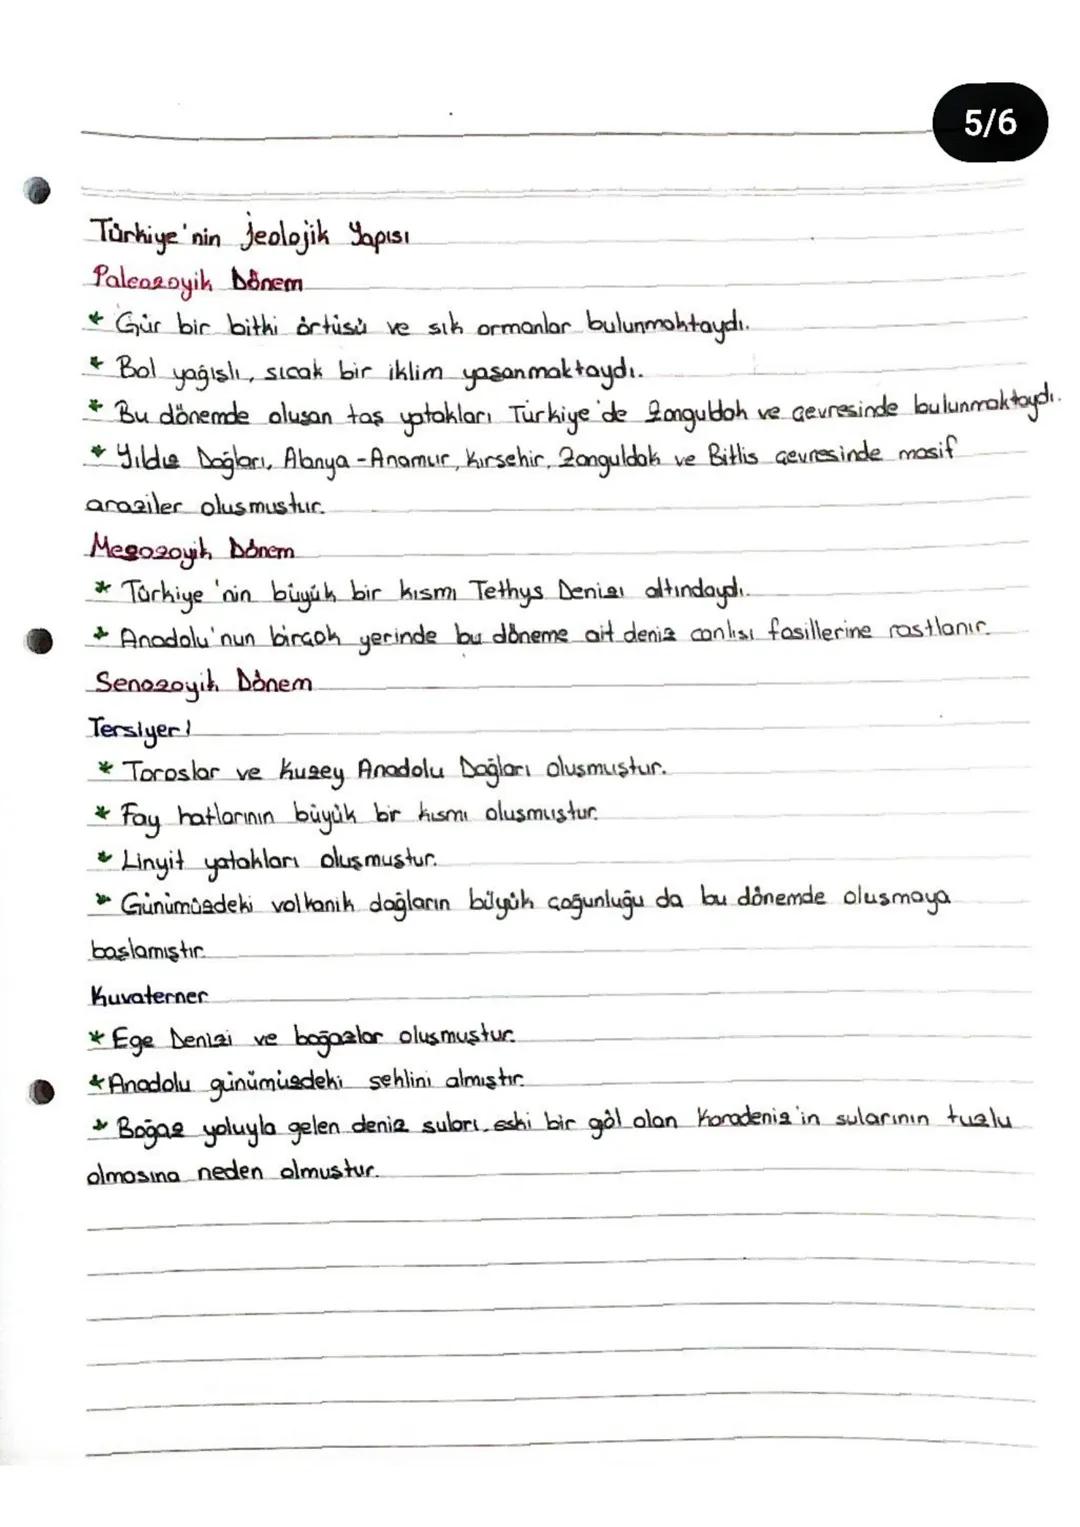 5/6
Türkiye'nin jeolojik Yapısı
Paleozoyik Dönem
* Gür bir bitki örtüsü ve sık ormanlar bulunmaktaydı.
* Bol yağışlı, sıcak bir iklim yaşanmaktaydı.
* Bu dönemde oluşan taş yatakları Türkiye'de Zonguldak ve çevresinde bulunmaktaydı.
* Yıldız Dağları, Alanya-Anamur, Kırşehir, Zonguldak ve Bitlis çevresinde masif
araziler oluşmuştur.
Mezozoyik Dönem
* Türkiye'nin büyük bir kısmı Tethys Denizi altındaydı.
* Anadolu'nun birçok yerinde bu döneme ait deniz canlısı fosillerine rastlanır.
Senozoyik Dönem
Tersiyer!
* Toroslar ve Kuzey Anadolu Dağları oluşmuştur.
* Fay hatlarının büyük bir kısmı oluşmuştur.
* Linyit yatakları oluşmuştur.
* Günümüzdeki volkanik dağların büyük çoğunluğu da bu dönemde oluşmaya
başlamıştır.
Kuvaterner
* Ege Denizi ve boğazlar oluşmuştur.
* Anadolu günümüzdeki şeklini almıştır.
* Boğaz yoluyla gelen deniz suları, eski bir göl olan Karadeniz'in sularının tuzlu
olmasına neden olmuştur.